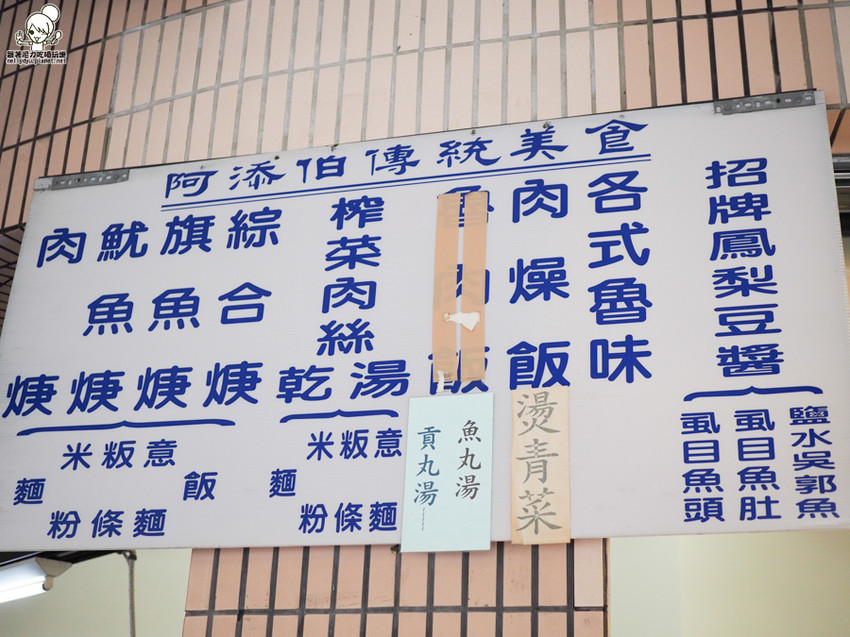 阿添伯傳統美食
招牌鳳梨豆醬
鹽水吳郭魚
虱目魚肚
虱目魚頭
各式魯味
肉燥飯
燙青菜
魯肉飯
魚丸湯
貢丸湯
榨菜肉絲
湯
乾
意麵
粄條
米粉
麵
綜合焿
旗魚焿
魷魚焿
肉焿
飯
意麵
粄條
米粉
麵
跟著尼力吃喝玩樂
nellydyu.pixnet.net